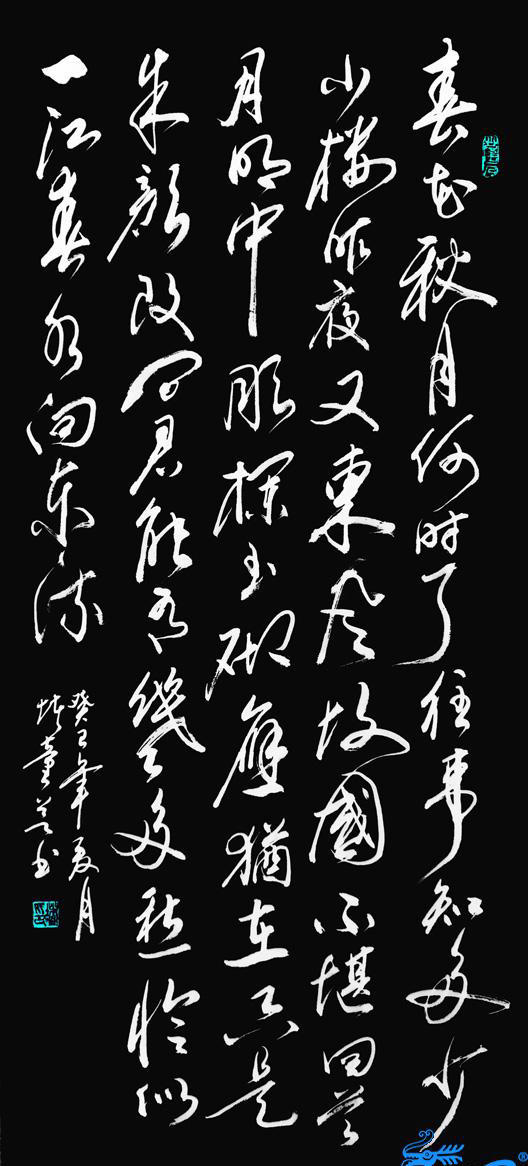 春花秋月何时了往事知多少
小楼昨夜又東风故國不堪回首
月明中雕栏玉砌應猶在只是
朱颜改问君能有幾多愁恰似
一江春水向东流
癸巳年夏月
书
®